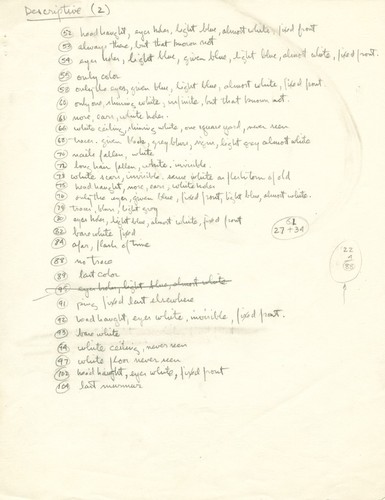 Descriptive (2)
52 head haught, eyes holes, light blue, almost white, fixed front
53 always there, but that known not
54 eyes holes, light blue, given blue, light blue, almost white, fixed front.
55 only color
58 only the eyes, given blue, light blue, almost white, fixed front.
60 only one, shining white, infinite, but that known not.
63 nose, ears, white holes.
66 white ceiling, shining white, one square yard, never seen
68 traces, given black, grey blurs, signs, light grey almost white
70 nails fallen, white
72 long hair fallen, white, invisible.
73 white scars, invisible, same white as flesh torn of old
75 head haught, nose, ears, white holes
76 only the eyes, given blue, fixed front, light blue, almost white.
79 traces, blurs, light grey
81 eyes holes, light blue, almost white, fixed front
82 bare white fixed
84 afar, flash of time
61
27 + 34
88 no trace
89 last color
22
4
90 eyes holes, light blue, almost white
91 ping fixed last elsewhere
92 head haught, eyes white, invisible, fixed front.
93 bare white
94 white ceiling, never seen
97 white floor never seen
102 head haught, eyes white, fixed front
104 last murmur